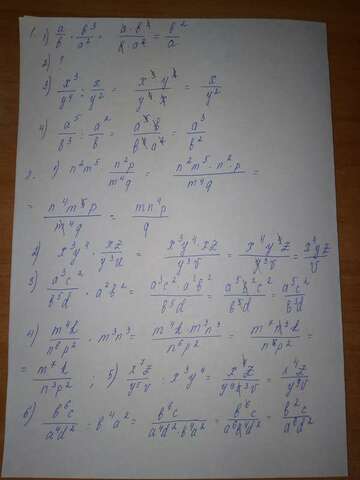 1. 1) a/b · b³/a² = a·b³/b·a² = b²/a
2) 1
3) x³/y⁴ : x/y² = x³y²/y⁴x = x/y²
4) a⁵/b³ : a²/b = a⁵b/b³a² = a³/b²
2. 1) n²m⁵ · n²p/m⁴q = n²m⁵·n²p/m⁴q =
= n⁴m⁵p/m⁴q = mn⁴p/q
2) x³y⁴ · xz/y³v = x³y⁴·xz/y³v = x⁴y⁴z/y³v = x⁴yz/v
3) a³c²/b⁵d · a²b² = a³c²·a²b²/b⁵d = a⁵b²c²/b⁵d = a⁵c²/b³d
4) m⁴d/n⁶p² · m³n³ = m⁴d·m³n³/n⁶p² = m⁷n³d/n⁶p² =
= m⁷d/n³p² ; 5) x⁷z/y⁵v : x³y⁴ = x⁷z/ = x⁴z/
6) b⁶c/a⁴d² : b⁴a² = b⁶c/a⁴d²·b⁴a² = b⁶c/a⁶b⁴d² = b²c/a⁶d²